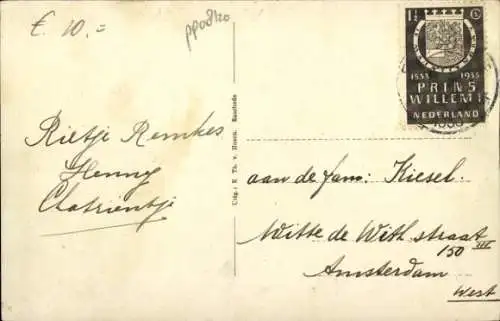 £ 10.=
pp08120
1½ C
1533 1933
PRINS
WILLEM I
NEDERLAND
Rietje Remkes
Henny
Catrientje
Uitg.: F. Th. v. Hoorn, Enschede
aan de fam: Kiesel.
Witte de With straat
150 III
Amsterdam
West